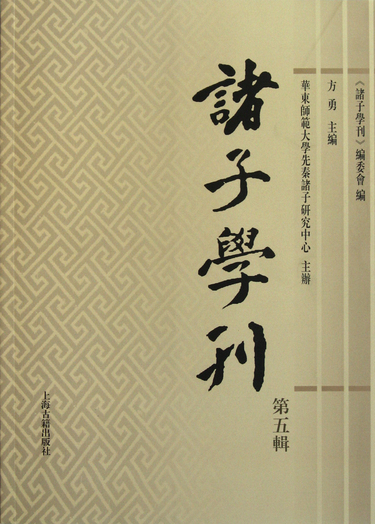 《諸子學刊》編委會 編
方勇 主編
華東師範大學先秦諸子研究中心 主辦
諸子學刊
第五輯
上海古籍出版社